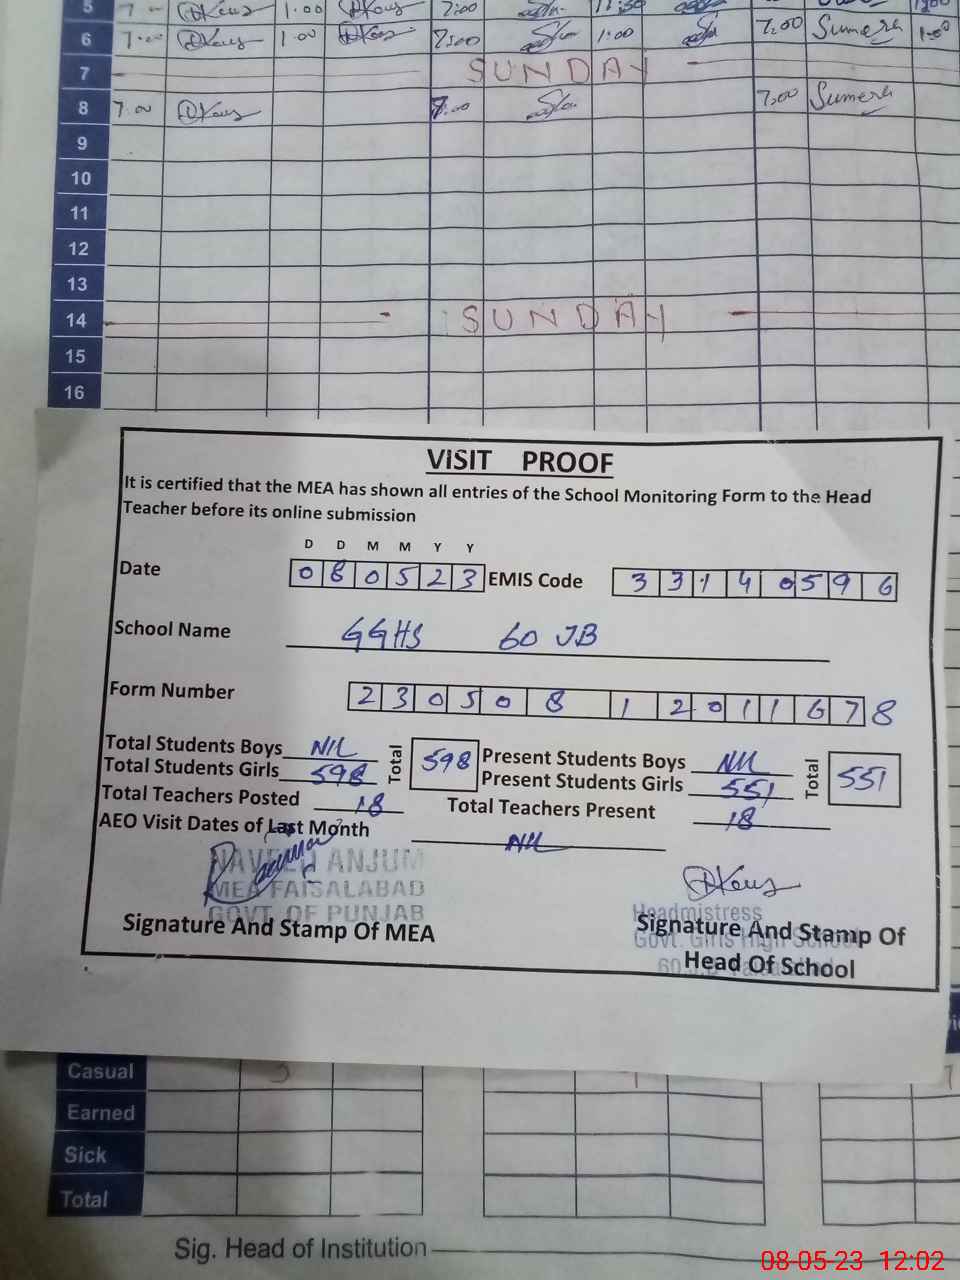 5 7.00 DKaus 1.00 DKaus 7:00 11:30
6 7.00 DKaus 1.00 DKaus 7:00 1:00 7.00 Sumera 1.00
7 SUNDAY
8 7.00 DKaus 7.00 7.00 Sumera
9
10
11
12
13
14 SUNDAY
15
16
VISIT PROOF
It is certified that the MEA has shown all entries of the School Monitoring Form to the Head
Teacher before its online submission
D D M M Y Y
Date 080523 EMIS Code 33140596
School Name GGHS 60 JB
Form Number 23050812011678
Total Students Boys NIL Total 598 Present Students Boys NIL Total 551
Total Students Girls 598 Present Students Girls 551
Total Teachers Posted 18 Total Teachers Present 18
AEO Visit Dates of Last Month NIL
NAVEED ANJUM
MEA FAISALABAD
GOVT. OF PUNJAB
Signature And Stamp Of MEA
DKaus
Headmistress
Govt. Girls High School
60 J.B Faisalabad
Signature And Stamp Of
Head Of School
Casual
Earned
Sick
Total
Sig. Head of Institution
08-05-23 12:02